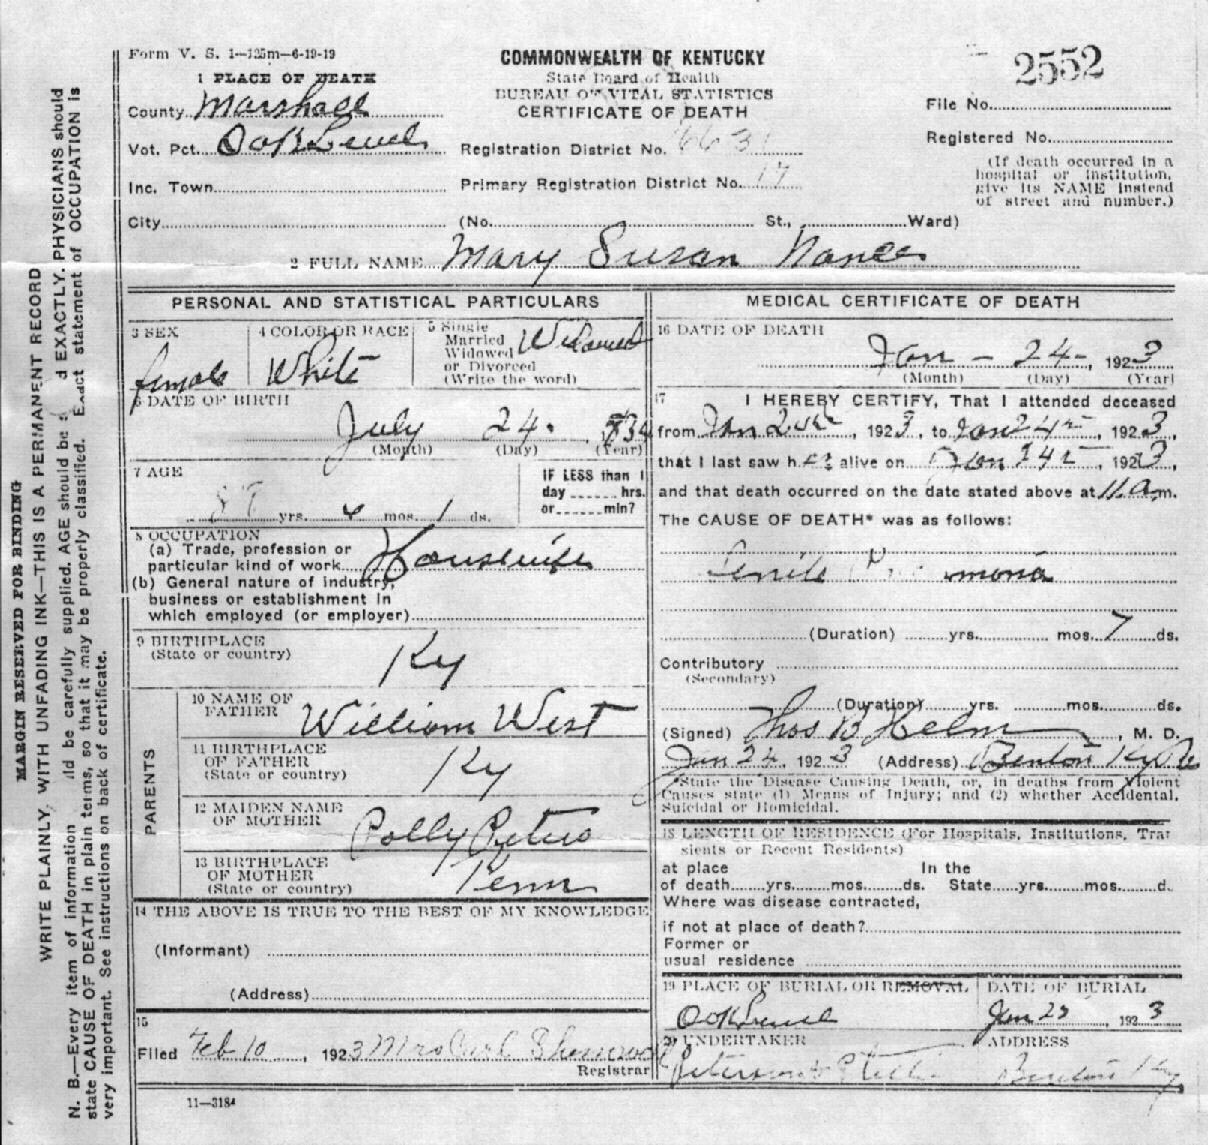 Form V. S. 1—125m—6-19-19
COMMONWEALTH OF KENTUCKY
State Board of Health
BUREAU OF VITAL STATISTICS
CERTIFICATE OF DEATH
2552
1 PLACE OF DEATH
County Marshall
Vot. Pct. Oak Level
Inc. Town
City
Registration District No. 6631
Primary Registration District No. 17
(No. St., Ward)
File No.
Registered No.
(If death occurred in a
hospital or institution,
give its NAME instead
of street and number.)
2 FULL NAME Mary Susan Nance
PERSONAL AND STATISTICAL PARTICULARS
3 SEX
female
4 COLOR OR RACE
White
5 Single
Married
Widowed
or Divorced
(Write the word)
Widowed
6 DATE OF BIRTH
July 24 834
(Month) (Day) (Year)
7 AGE
yrs. mos. 1 ds.
IF LESS than 1
day hrs.
or min?
8 OCCUPATION
(a) Trade, profession or
particular kind of work Housewife
(b) General nature of industry,
business or establishment in
which employed (or employer)
9 BIRTHPLACE
(State or country)
Ky
PARENTS
10 NAME OF
FATHER William West
11 BIRTHPLACE
OF FATHER
(State or country) Ky
12 MAIDEN NAME
OF MOTHER Polly Peters
13 BIRTHPLACE
OF MOTHER
(State or country) Tenn
14 THE ABOVE IS TRUE TO THE BEST OF MY KNOWLEDGE
(Informant)
(Address)
15
Filed Feb 10, 1923 Mrs Carl
Registrar
11—3184
MEDICAL CERTIFICATE OF DEATH
16 DATE OF DEATH
Jan - 24 -, 1923
(Month) (Day) (Year)
17 I HEREBY CERTIFY, That I attended deceased
from Jan, 1923, to Jan 24, 1923,
that I last saw her alive on Jan 24, 1923,
and that death occurred on the date stated above at 11 a m.
The CAUSE OF DEATH* was as follows:
Senile
(Duration) yrs. mos. 7 ds.
Contributory
(Secondary)
(Duration) yrs. mos. ds.
(Signed) Thos B Helm, M. D.
Jan 24, 1923 (Address) Benton Ky
*State the Disease Causing Death, or, in deaths from Violent
Causes state (1) Means of Injury; and (2) whether Accidental,
Suicidal or Homicidal.
18 LENGTH OF RESIDENCE (For Hospitals, Institutions, Tran
sients or Recent Residents)
at place In the
of death yrs. mos. ds. State yrs. mos. d.
Where was disease contracted,
if not at place of death?
Former or
usual residence
19 PLACE OF BURIAL OR REMOVAL
Oak Level
DATE OF BURIAL
Jan 25, 1923
20 UNDERTAKER
ADDRESS
Benton Ky
MARGIN RESERVED FOR BINDING
WRITE PLAINLY, WITH UNFADING INK—THIS IS A PERMANENT RECORD
N. B.—Every item of information ld be carefully supplied. AGE should be s d EXACTLY. PHYSICIANS should
state CAUSE OF DEATH in plain terms, so that it may be properly classified. Exact statement of OCCUPATION is
very important. See instructions on back of certificate.